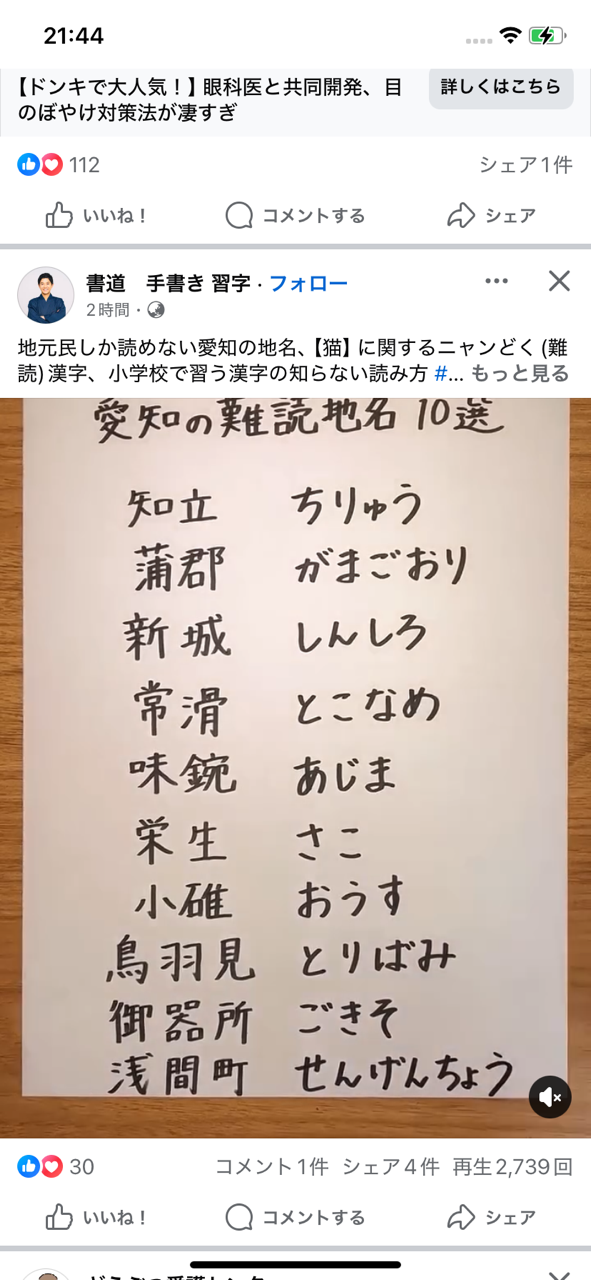 21:44
【ドンキで大人気！】眼科医と共同開発、目
のぼやけ対策法が凄すぎ
詳しくはこちら
112
シェア1件
いいね！
コメントする
シェア
書道　手書き 習字 · フォロー
2時間 ·
地元民しか読めない愛知の地名、【猫】に関するニャンどく (難
読) 漢字、小学校で習う漢字の知らない読み方 #... もっと見る
愛知の難読地名10選
知立 ちりゅう
蒲郡 がまごおり
新城 しんしろ
常滑 とこなめ
味鋺 あじま
栄生 さこ
小碓 おうす
鳥羽見 とりばみ
御器所 ごきそ
浅間町 せんげんちょう
30
コメント1件 シェア4件 再生2,739回
いいね！
コメントする
シェア